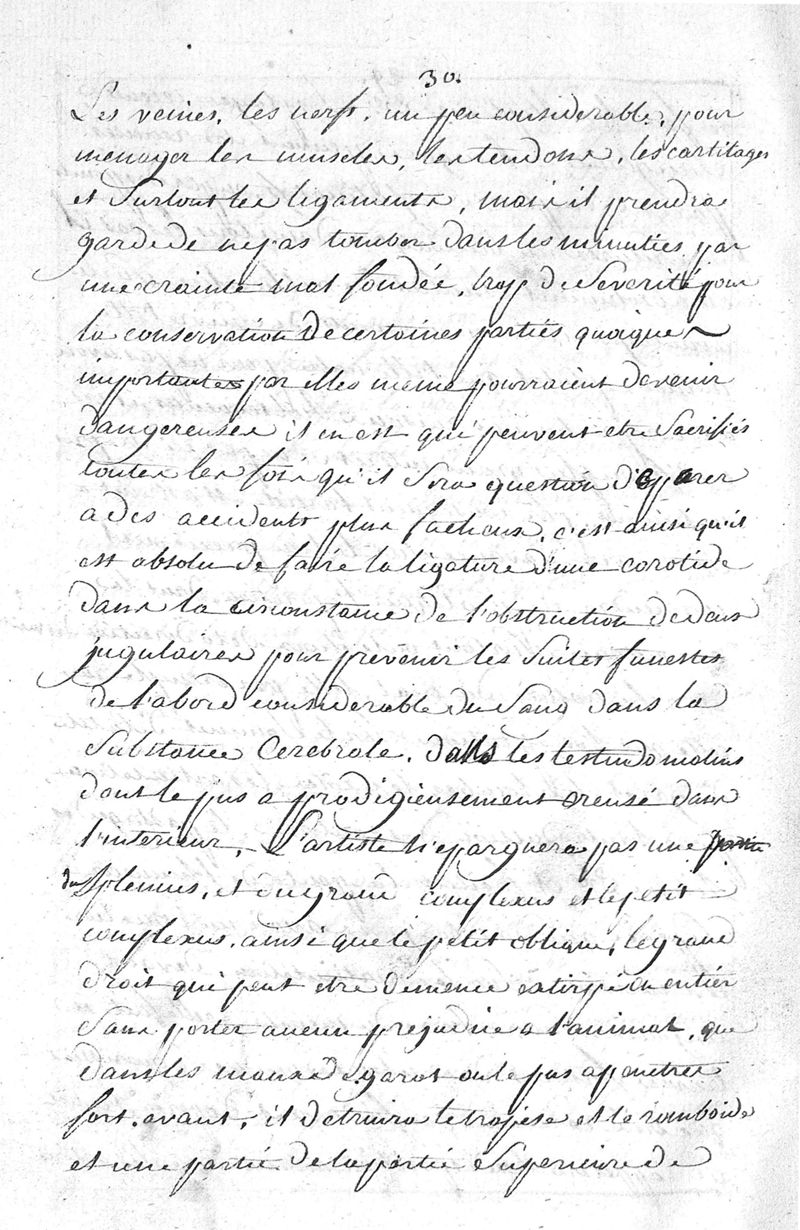 30.
Les veines, les nerfs, un peu considerable, pour
menager les muscles, les tendons, les cartilages
et Surtout les ligaments, mais il prendra
garde de ne pas tomber dans les minuties par
une crainte mal fondée, trop de Severité pour
la conservation de certaines parties quoique
importantes par elles meme pourraient devenir
dangereuses il en est qui peuvent etre Sacrifiés
toutes les fois qu'il Sera question d'oparer
a des accidents plus facheux, c'est ainsi qu'il
est absolu de faire la ligature d'une carotide
dans la circonstance de l'obstruction de deux
jugulaires pour prevenir les Suites funestes
de l'abord considerable du Sang dans la
Substance Cerebrale. dans les testudo malins
dont le pus a prodigieusement creusé dans
l'interieur, L'artiste n'epargnera pas une partie
du Splenius, et du grand complexus et le petit
complexus, ainsi que le petit oblique, le grand
droit qui peut etre de meme extirpé en entier
Sans porter aucun prejudice a l'animal, que
dans les maux de garot ou le pus a penetré
fort avant, il detruira le trapese et le romboide
et une partie de la partie Superieure de